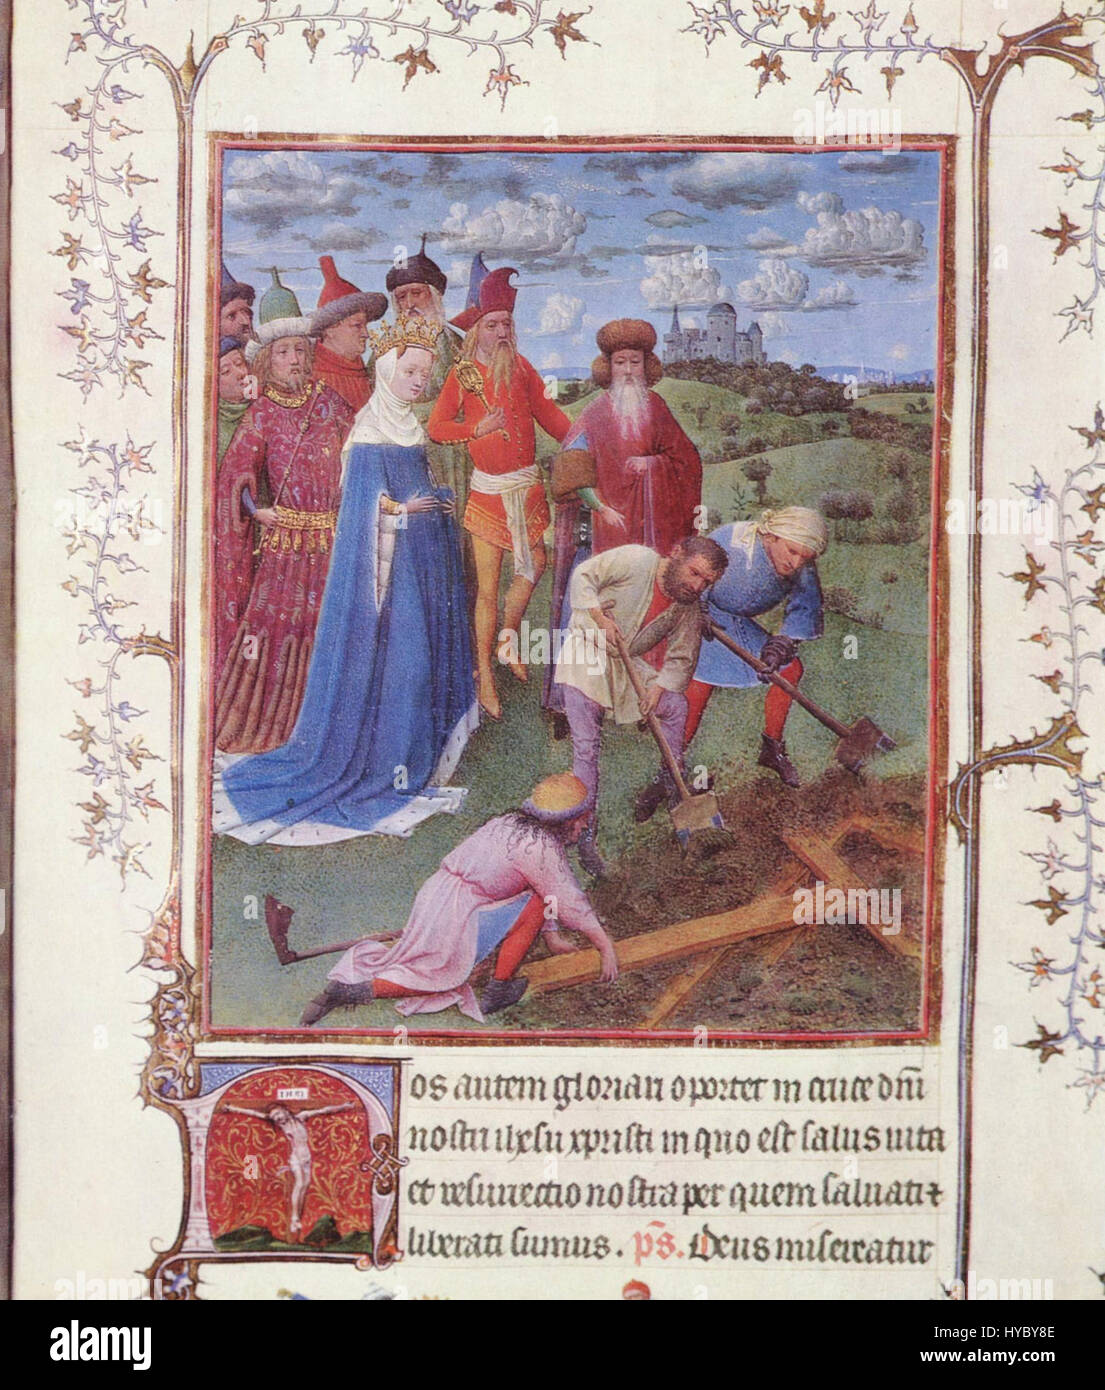 INRI
Nos autem gloriari oportet in cruce dñi
nostri ihesu xpristi in quo est salus uita
et resurrectio nostra per quem saluati ⁊
liberati sumus. ps. Deus misereatur
a
alamy
alamy stock photo
HYBY8E
www.alamy.com